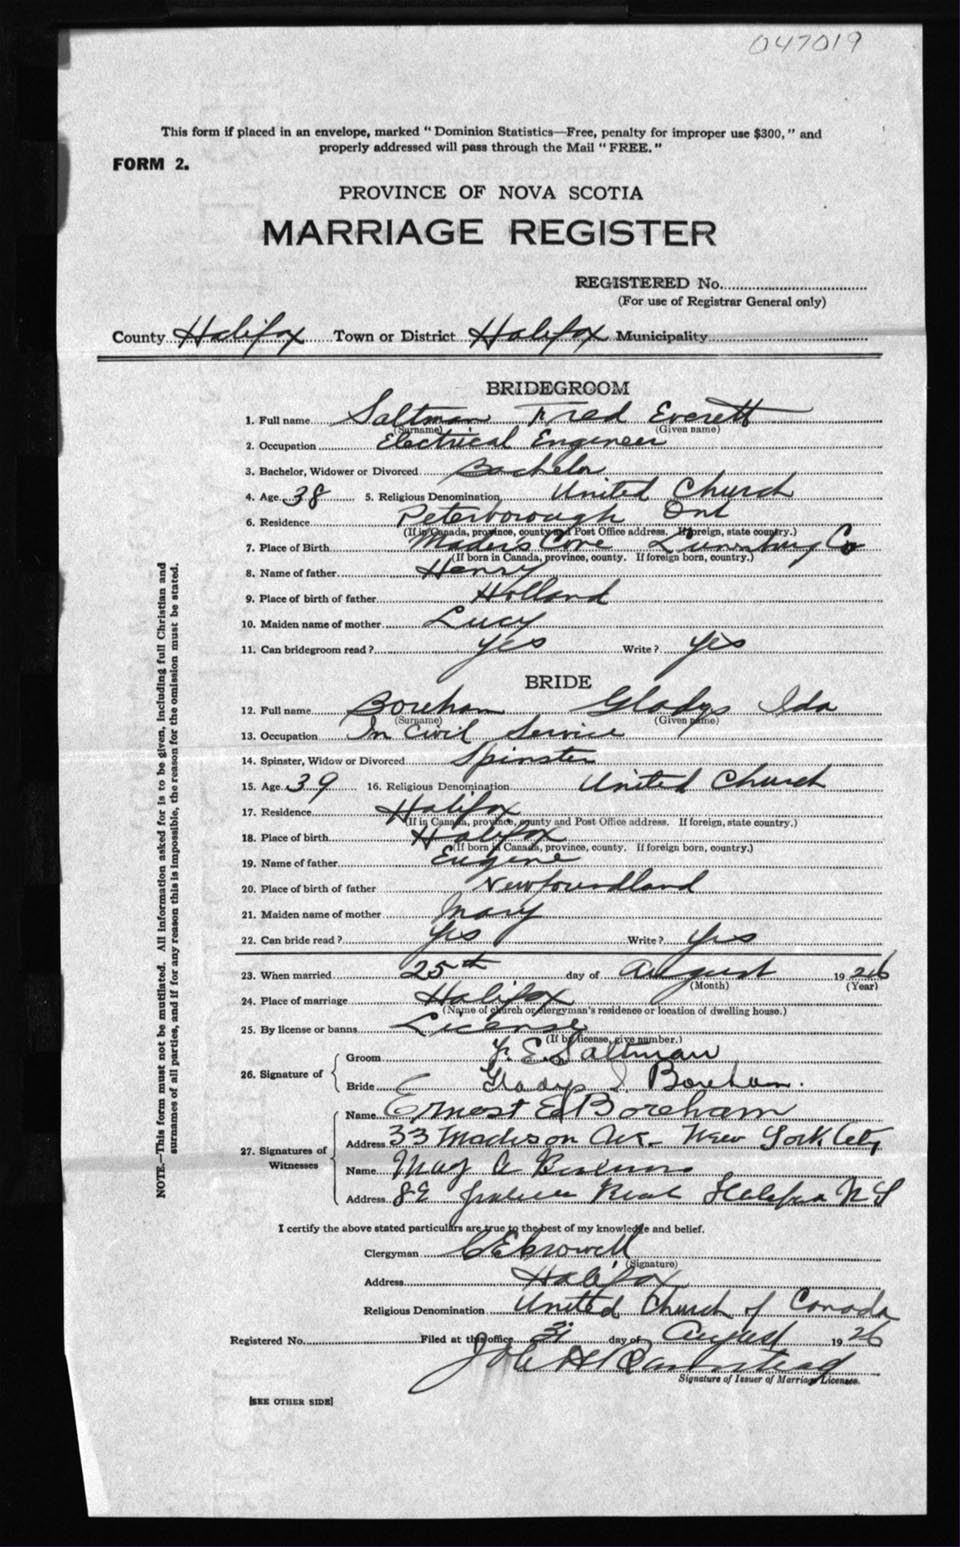 047019
This form if placed in an envelope, marked "Dominion Statistics—Free, penalty for improper use $300," and
properly addressed will pass through the Mail "FREE."
FORM 2.
PROVINCE OF NOVA SCOTIA
MARRIAGE REGISTER
REGISTERED No.
(For use of Registrar General only)
County Halifax Town or District Halifax Municipality
BRIDEGROOM
1. Full name Saltman Fred Everett
(Surname) (Given name)
2. Occupation Electrical Engineer
3. Bachelor, Widower or Divorced Bachelor
4. Age 38 5. Religious Denomination United Church
6. Residence Peterborough Ont
(If in Canada, province, county and Post Office address. If foreign, state country.)
7. Place of Birth Maders Cove Lunenburg Co
(If born in Canada, province, county. If foreign born, country.)
8. Name of father Henry
9. Place of birth of father Holland
10. Maiden name of mother Lucy
11. Can bridegroom read? Yes Write? Yes
BRIDE
12. Full name Boreham Gladys Ida
(Surname) (Given name)
13. Occupation In Civil Service
14. Spinster, Widow or Divorced Spinster
15. Age 39 16. Religious Denomination United Church
17. Residence Halifax
(If in Canada, province, county and Post Office address. If foreign, state country.)
18. Place of birth Halifax
(If born in Canada, province, county. If foreign born, country.)
19. Name of father Eugene
20. Place of birth of father Newfoundland
21. Maiden name of mother Mary
22. Can bride read? Yes Write? Yes
23. When married 25th day of August 1926
(Month) (Year)
24. Place of marriage Halifax
(Name of church or clergyman's residence or location of dwelling house.)
25. By license or banns License
(If by license, give number.)
26. Signature of
Groom F. E. Saltman
Bride Gladys I Boreham.
27. Signatures of Witnesses
Name Ernest E Boreham
Address 33 Madison Av. New York City
Name May A
Address Halifax N S
I certify the above stated particulars are true to the best of my knowledge and belief.
Clergyman C E Crowell
(Signature)
Address Halifax
Religious Denomination United Church of Canada
Registered No. Filed at this office 31 day of August 1926
H
Signature of Issuer of Marriage Licenses.
[SEE OTHER SIDE]
NOTE.—This form must not be mutilated. All information asked for is to be given, including full Christian and
surnames of all parties, and if for any reason this is impossible, the reason for the omission must be stated.